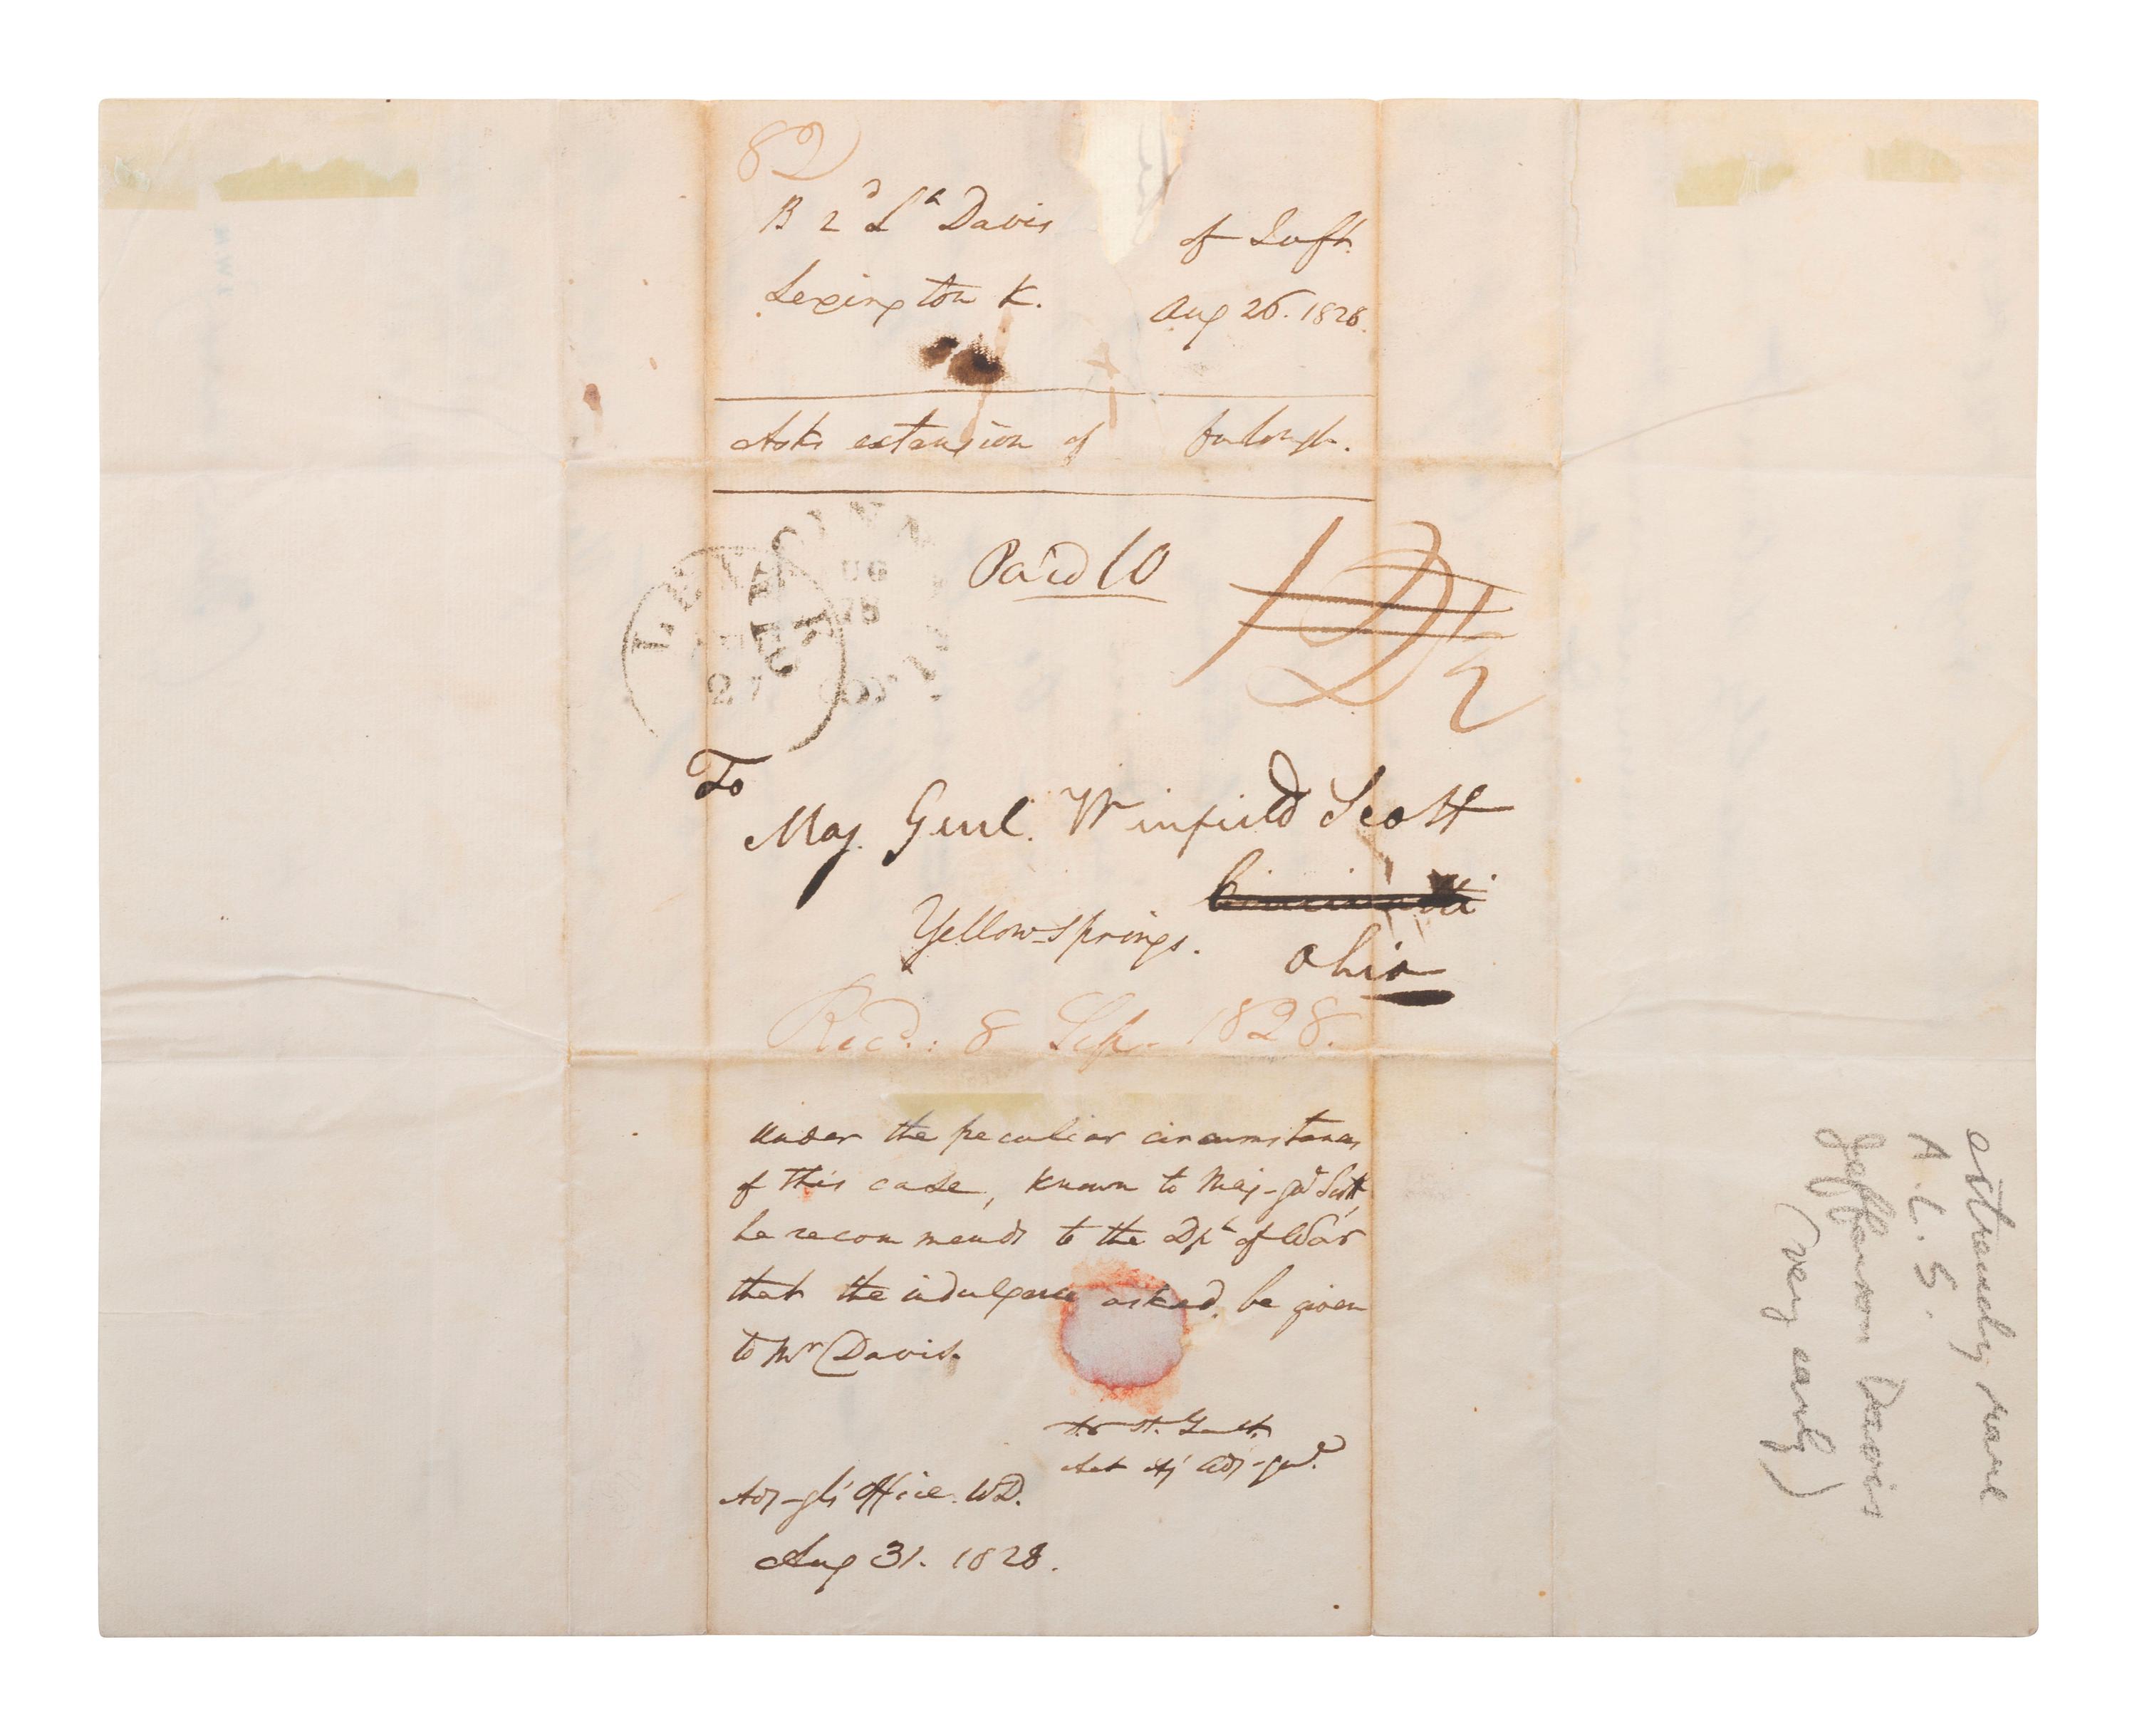 82
B 2d Lt Davis of Inft.
Lexington K. Aug 26. 1828.
Asks extension of furlough.
Paid 10
LEXINGTON KY
AUG
27
CINCINNATI
UG
28
OHIO
12 1/2
To
Maj. Genl. Winfield Scott
Cincinnatti
Yellow Springs.
Ohio
Recd.: 8 Sep. 1828.
Under the peculiar circumstances
of this case, known to Maj-Gnl Scott,
he recommends to the Dpt of War
that the indulgence asked, be given
to Mr Davis.
Act
Adj-gls' Office. W.D.
Aug 31. 1828.
extremely rare
A. L. S.
Jefferson Davis
(very early)